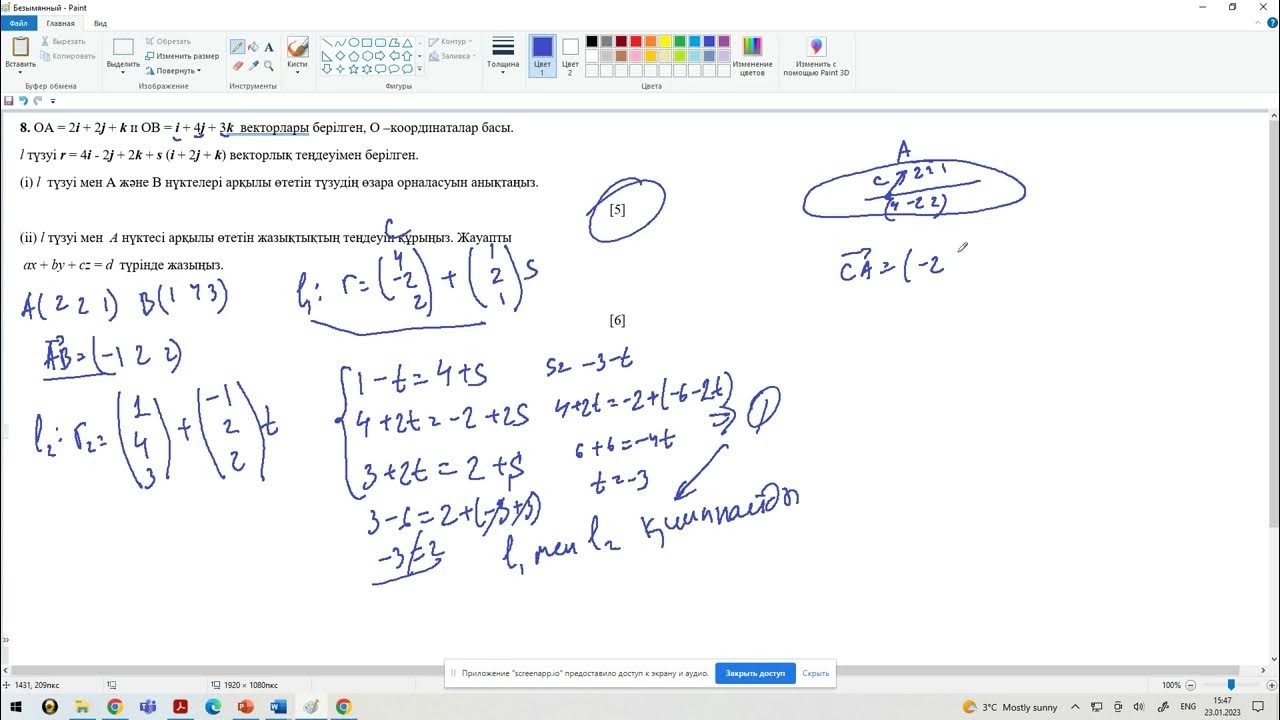 Безымянный - Paint
Файл Главная Вид
Вставить
Вырезать
Копировать
Буфер обмена
Выделить
Обрезать
Изменить размер
Повернуть
Изображение
A
Инструменты
Кисти
Фигуры
Контур
Заливка
Толщина
Цвет 1
Цвет 2
Цвета
Изменение цветов
Изменить с помощью Paint 3D
8. OA = 2i + 2j + k и OB = i + 4j + 3k векторлары берілген, О –координаталар басы.
l түзуі r = 4i - 2j + 2k + s (i + 2j + k) векторлық теңдеуімен берілген.
(i) l түзуі мен А және В нүктелері арқылы өтетін түзудің өзара орналасуын анықтаңыз.
[5]
(ii) l түзуі мен А нүктесі арқылы өтетін жазықтықтың теңдеуін құрыңыз. Жауапты
ax + by + cz = d түрінде жазыңыз.
[6]
A
C 2 2 1
(4 -2 2)
CA = (-2
A(2 2 1) B(1 4 3)
AB = (-1 2 2)
C
l₁: r = (4 -2 2) + (1 2 1) s
l₂: r₂ = (1 4 3) + (-1 2 2) t
1 - t = 4 + s
4 + 2t = -2 + 2s
3 + 2t = 2 + s
3 - 6 = 2 + (-3 + 3)
-3 ≠ 2
s = -3 - t
4 + 2t = -2 + (-6 - 2t)
6 + 6 = -4t
t = -3
⇒ 1
l₁ мен l₂ қиылыспайды
Приложение "screenapp.io" предоставило доступ к экрану и аудио.
Закрыть доступ
Скрыть
1431, 209пкс
1920 × 1080пкс
100%
3°C Mostly sunny
ENG
15:47
23.01.2023